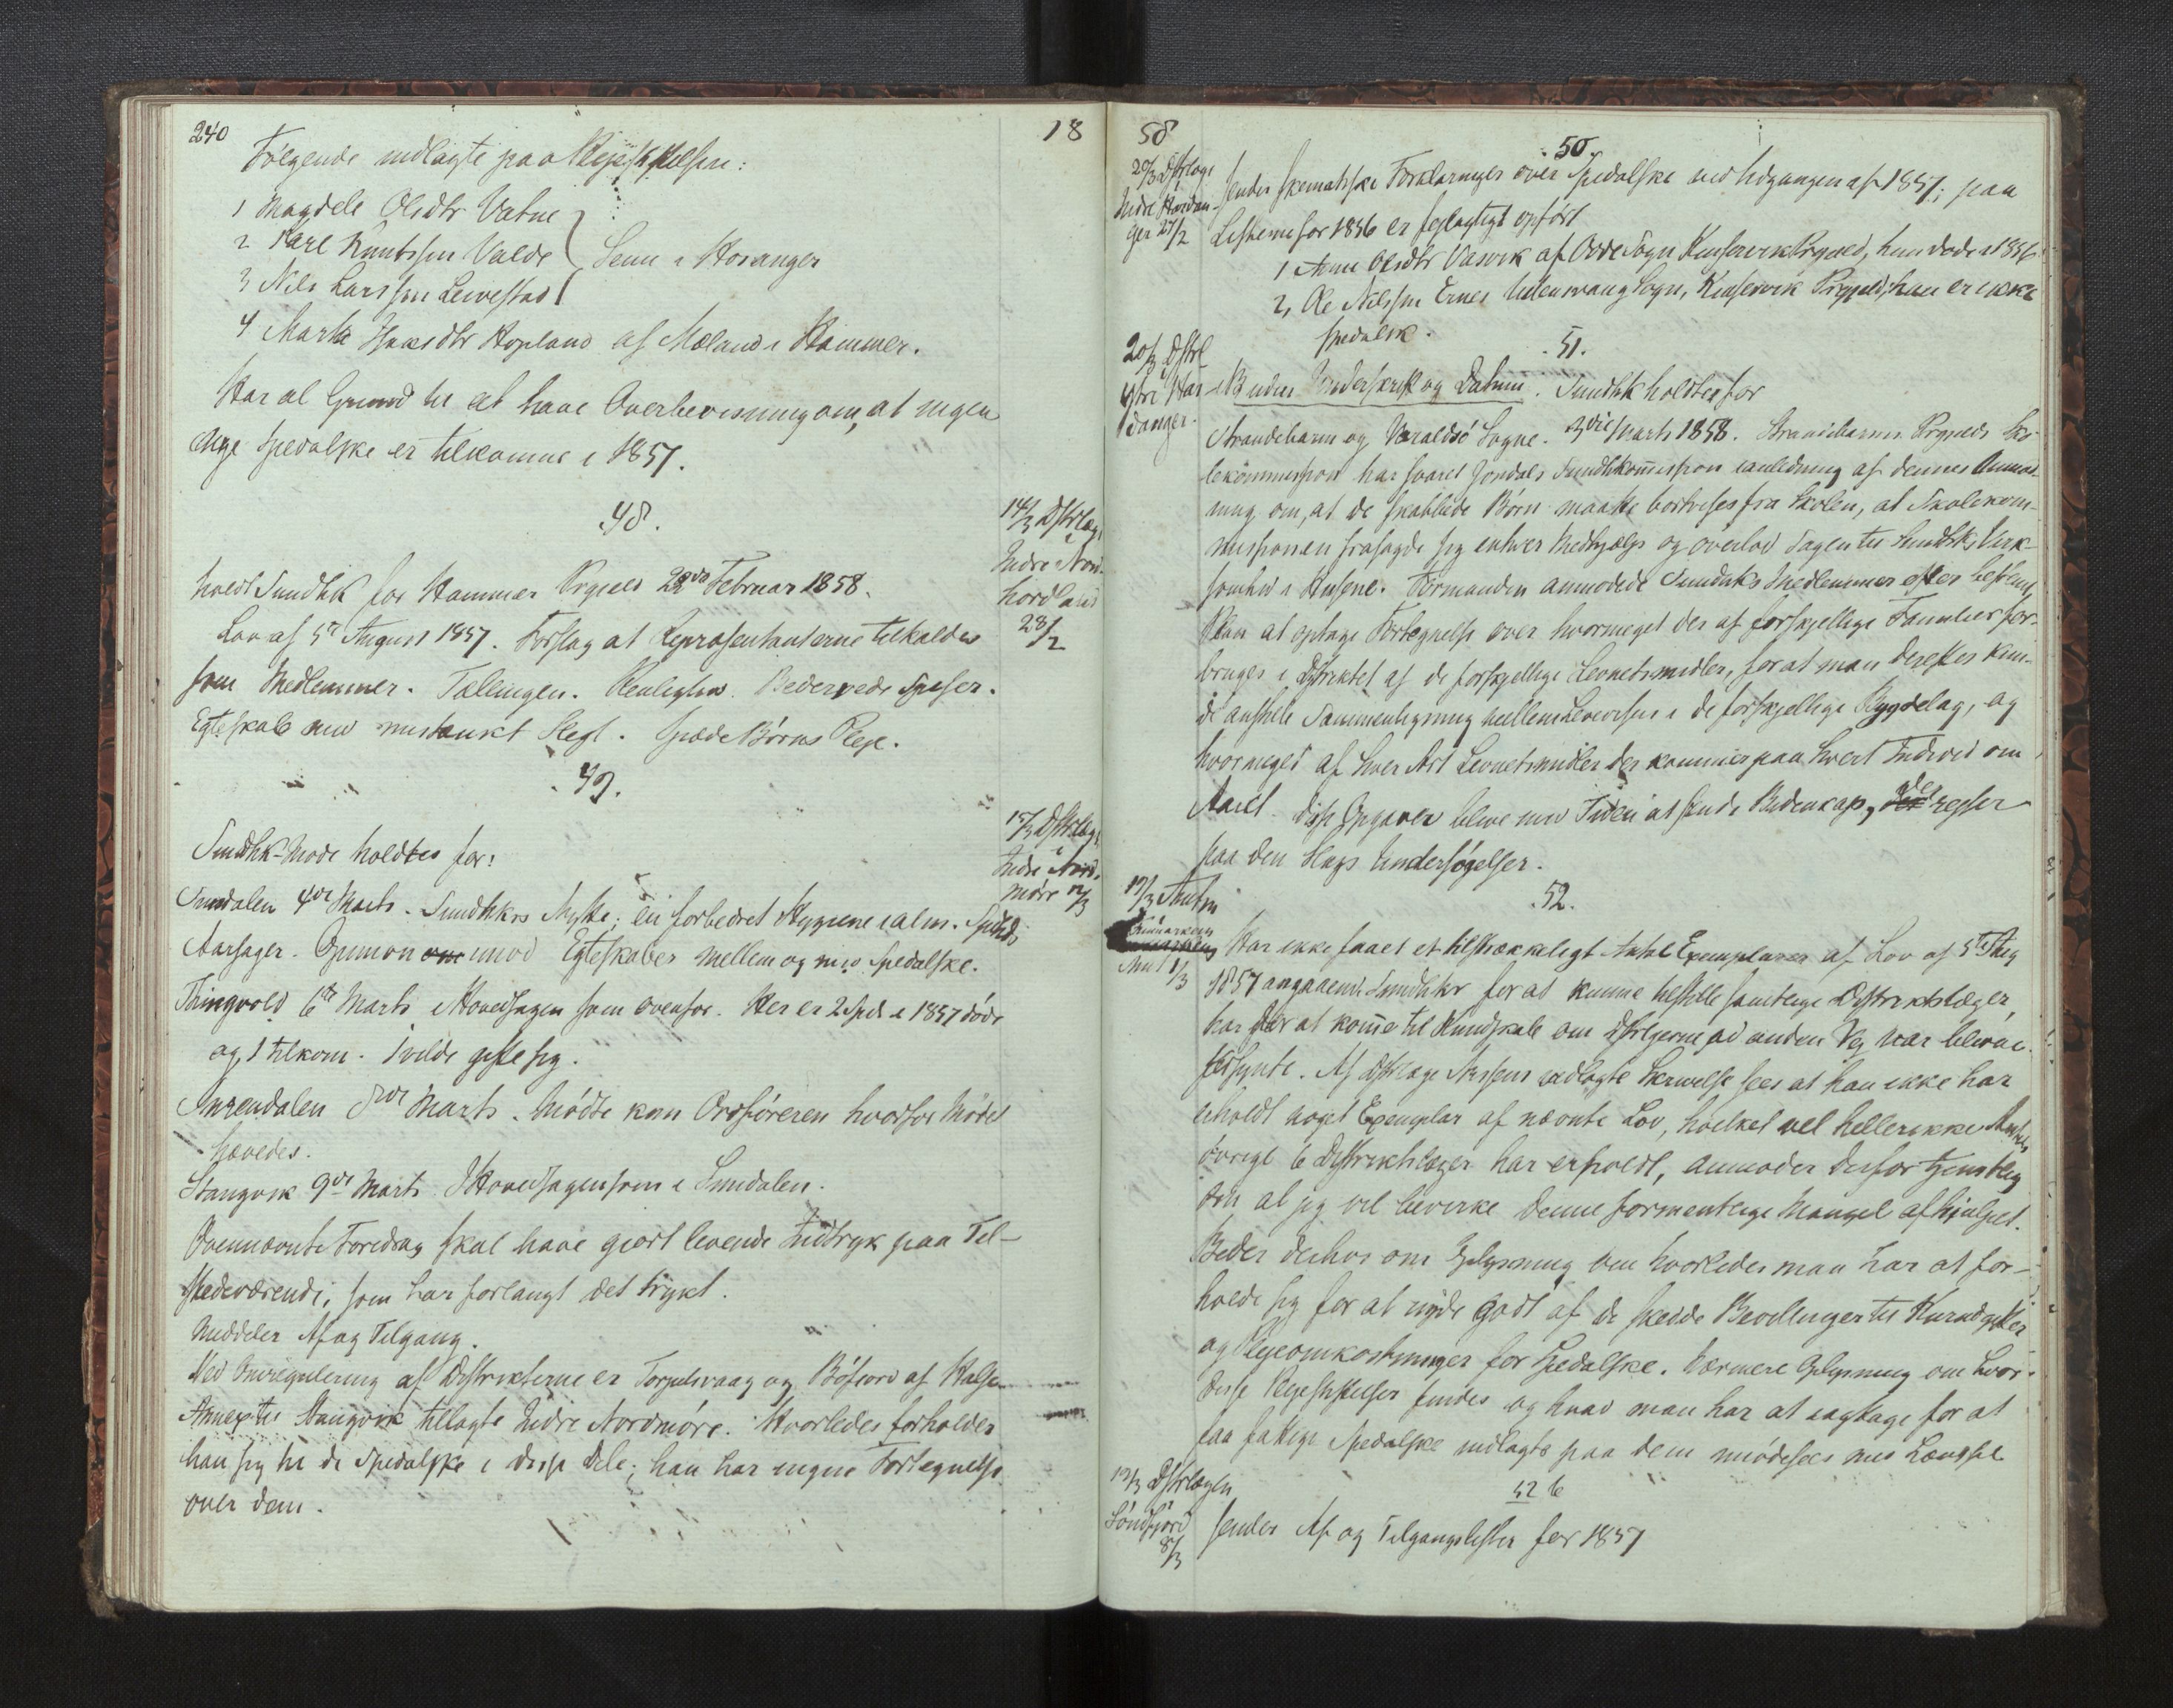 240
18
Følgende indlagte paa Plejestiftelsen:
1 Magdele Olsdtr Vatne
2 Karl Knutssen Valde
3 Nils Larssen Leirestad
Lenu i Hosanger
4 Marta Isaksdtr Hopland af Mæland i Hammer.
Har al Grund til at have Overbevisning om, at ingen
nye Spedalske er tilkomne i 1857.
48.
14/3 Dstrlæg.
Indre Nord-
hordland
28/2
holdt Sundhk for Hammer Prgjeld 22de Februar 1858.
Lov af 5te August 1857. Forslag at Repræsentanterne tilkaldes
som Medlemmer. Tælingen. Renlighed. Bedervede Speser.
Egteskab med mistænkt Slegt. spæde Børns Pleje.
49.
15/3 Dstrlæg.
Indre Nord-
møre 12/3
Sundhk-Møde holdtes for:
Sundalen 4de Marts. Sundhkrs Nytte; en forbedret Hygiene i alm. Spedsk
Aarsager. Opinion om imod Egteskaber mellem og med Spedalske.
Thingvold 6te Marts i Hovedsagen som ovenfor. Her er 2 Spds i 1857 døde
og 1 tilkom. 1 vilde gifte sig.
Surendalen 8de Marts. Mødte kun Ordføreren hvorfor Mødet
hævedes.
Stangvik 9de Marts I Hovedsagen som i Sundalen.
Ovennævnte Foredrag skal have gjort levende Indtryk paa Til-
stedeværende, som har forlangt det trykt.
Meddeler Af og Tilgang.
Ved Omregulering af Distrikterne er Torjulvaag og Bøfiord af Halse
Annex til Stangvik tillagte Indre Nordmøre. Hvorledes forholder
han sig til de Spedalske i disse Dele; han har ingen Fortegnelse
over dem.
58
50.
20/3 Dstrlæge
Indre Hardan-
ger 27/2
sender skematiske Forklaringer over Spedalske ved Udgangen af 1857; paa
Listerne for 1856 er feilagtigt opført
1 Anne Olsdtr Vasvik af Odde Sogn Kinservik Prgjeld, hun døde i 1856
2, Ole Nilssen Ernes Ullensvang Sogn, Kinservik Prgjeld, han er ikke
spedalsk.
51.
20/3 Dstrl
ytre Har-
danger.
uden Underskrift og Datum. Sundhk holdtes for
Strandebarm og Varaldsø Sogne. 3die Marts 1858. Strandebarms Prgjelds Sko-
lekommission har svaret Jondals Sundhkommission i anledning af dennes Anmod-
ning om, at de skabbede Børn maatte bortvises fra Skolen, at Skolekom-
missionen frasagde sig enhver Medhjælp og overlod Sagen til Sundhks Virk-
somhed i Husene. Formanden anmodede Sundhks Medlemmer efter bestemt
Plan at optage Fortegnelse over hvormeget der af forskjellige Familier for-
bruges i Distriktet af de forskjellige Levnetsmidler, for at man derefter kun-
de anstille Sammenligning mellem Levevisen i de forskjellige Bygdelag, og
hvormeget af hver Art Levnetsmidler der kommer paa hvert Individ om
Aaret. Disse Opgaver bleve med Tiden at sende Videnskaps
paa den Slags Undersøgelser.
52.
17/3 Amtm
Finmarkens
Amt 1/3
Har ikke faaet et tilstrækkeligt Antal Exemplarer af Lov af 5te Aug
1857 angaaende Sundhkr for at kunne tilstille samtlige Distriktslæger,
har for at komme til Kundskab om Dstrlægerne ad anden Vej var blevne
forsynte. Af Dstrlæge Nissens vedlagte Skrivelse sees at han ikke har
erholdt noget Exemplar af nævnte Lov, hvilket vel heller ikke Amtets
øvrige 6 Distriktslæger har erholdt, anmoder derfor tjenstlig
om at jeg vil bevirke denne formentlige Mangel afhjulpet.
Beder derhos om Oplysning om hvorledes man har at for-
holde sig for at nyde godt af de skedde Bevillinger til Kurudgifter
og Plejeomkostninger for Spedalske. Nærmere Oplysning om hvor
disse Plejestiftelser findes og hvad man har at iagttage for at
faa fattige Spedalske indlagte paa dem imødesees med Længsel
52 b
17/3 Dstrlægen
Søndfjord
8/3
sender Af og Tilgangslister for 1857